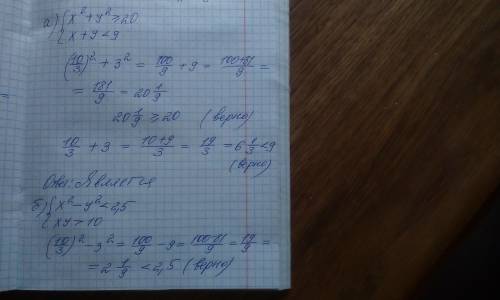 а) { x² + y² ≥ 20
{ x + y < 9
(10/3)² + 3² = 100/9 + 9 = (100+81)/9 =
= 181/9 = 20 1/9
20 1/9 ≥ 20 (верно)
10/3 + 3 = (10+9)/3 = 19/3 = 6 1/3 < 9
(верно)
Ответ: Является
б) { x² - y² < 2,5
{ xy ≥ 10
(10/3)² - 3² = 100/9 - 9 = (100-81)/9 = 19/9 =
= 2 1/9 < 2,5 (верно)